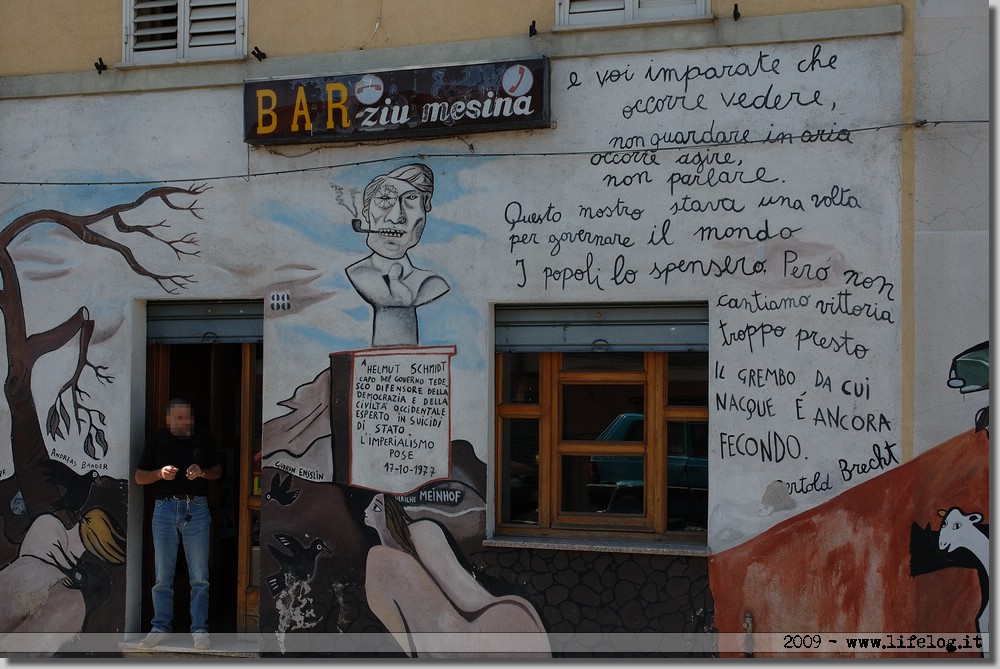 BAR ziu mesina
e voi imparate che
occorre vedere,
non guardare in aria
occorre agire,
non parlare.
Questo mostro stava una volta
per governare il mondo
I popoli lo spensero. Peró non
cantiamo vittoria
troppo presto
IL GREMBO DA CUI
NACQUE É ANCORA
FECONDO.
Bertold Brecht
88
A HELMUT SCHMIDT
CAPO DEL GOVERNO TEDE_
SCO DIFENSORE DELLA
DEMOCRAZIA E DELLA
CIVILTÀ OCCIDENTALE
ESPERTO IN SUICIDI
DI STATO.
L'IMPERIALISMO
POSE
17-10-1977
ANDREAS BAADER
GUDRUN ENSSLIN
ULRICHE MEINHOF
2009 - www.lifelog.it